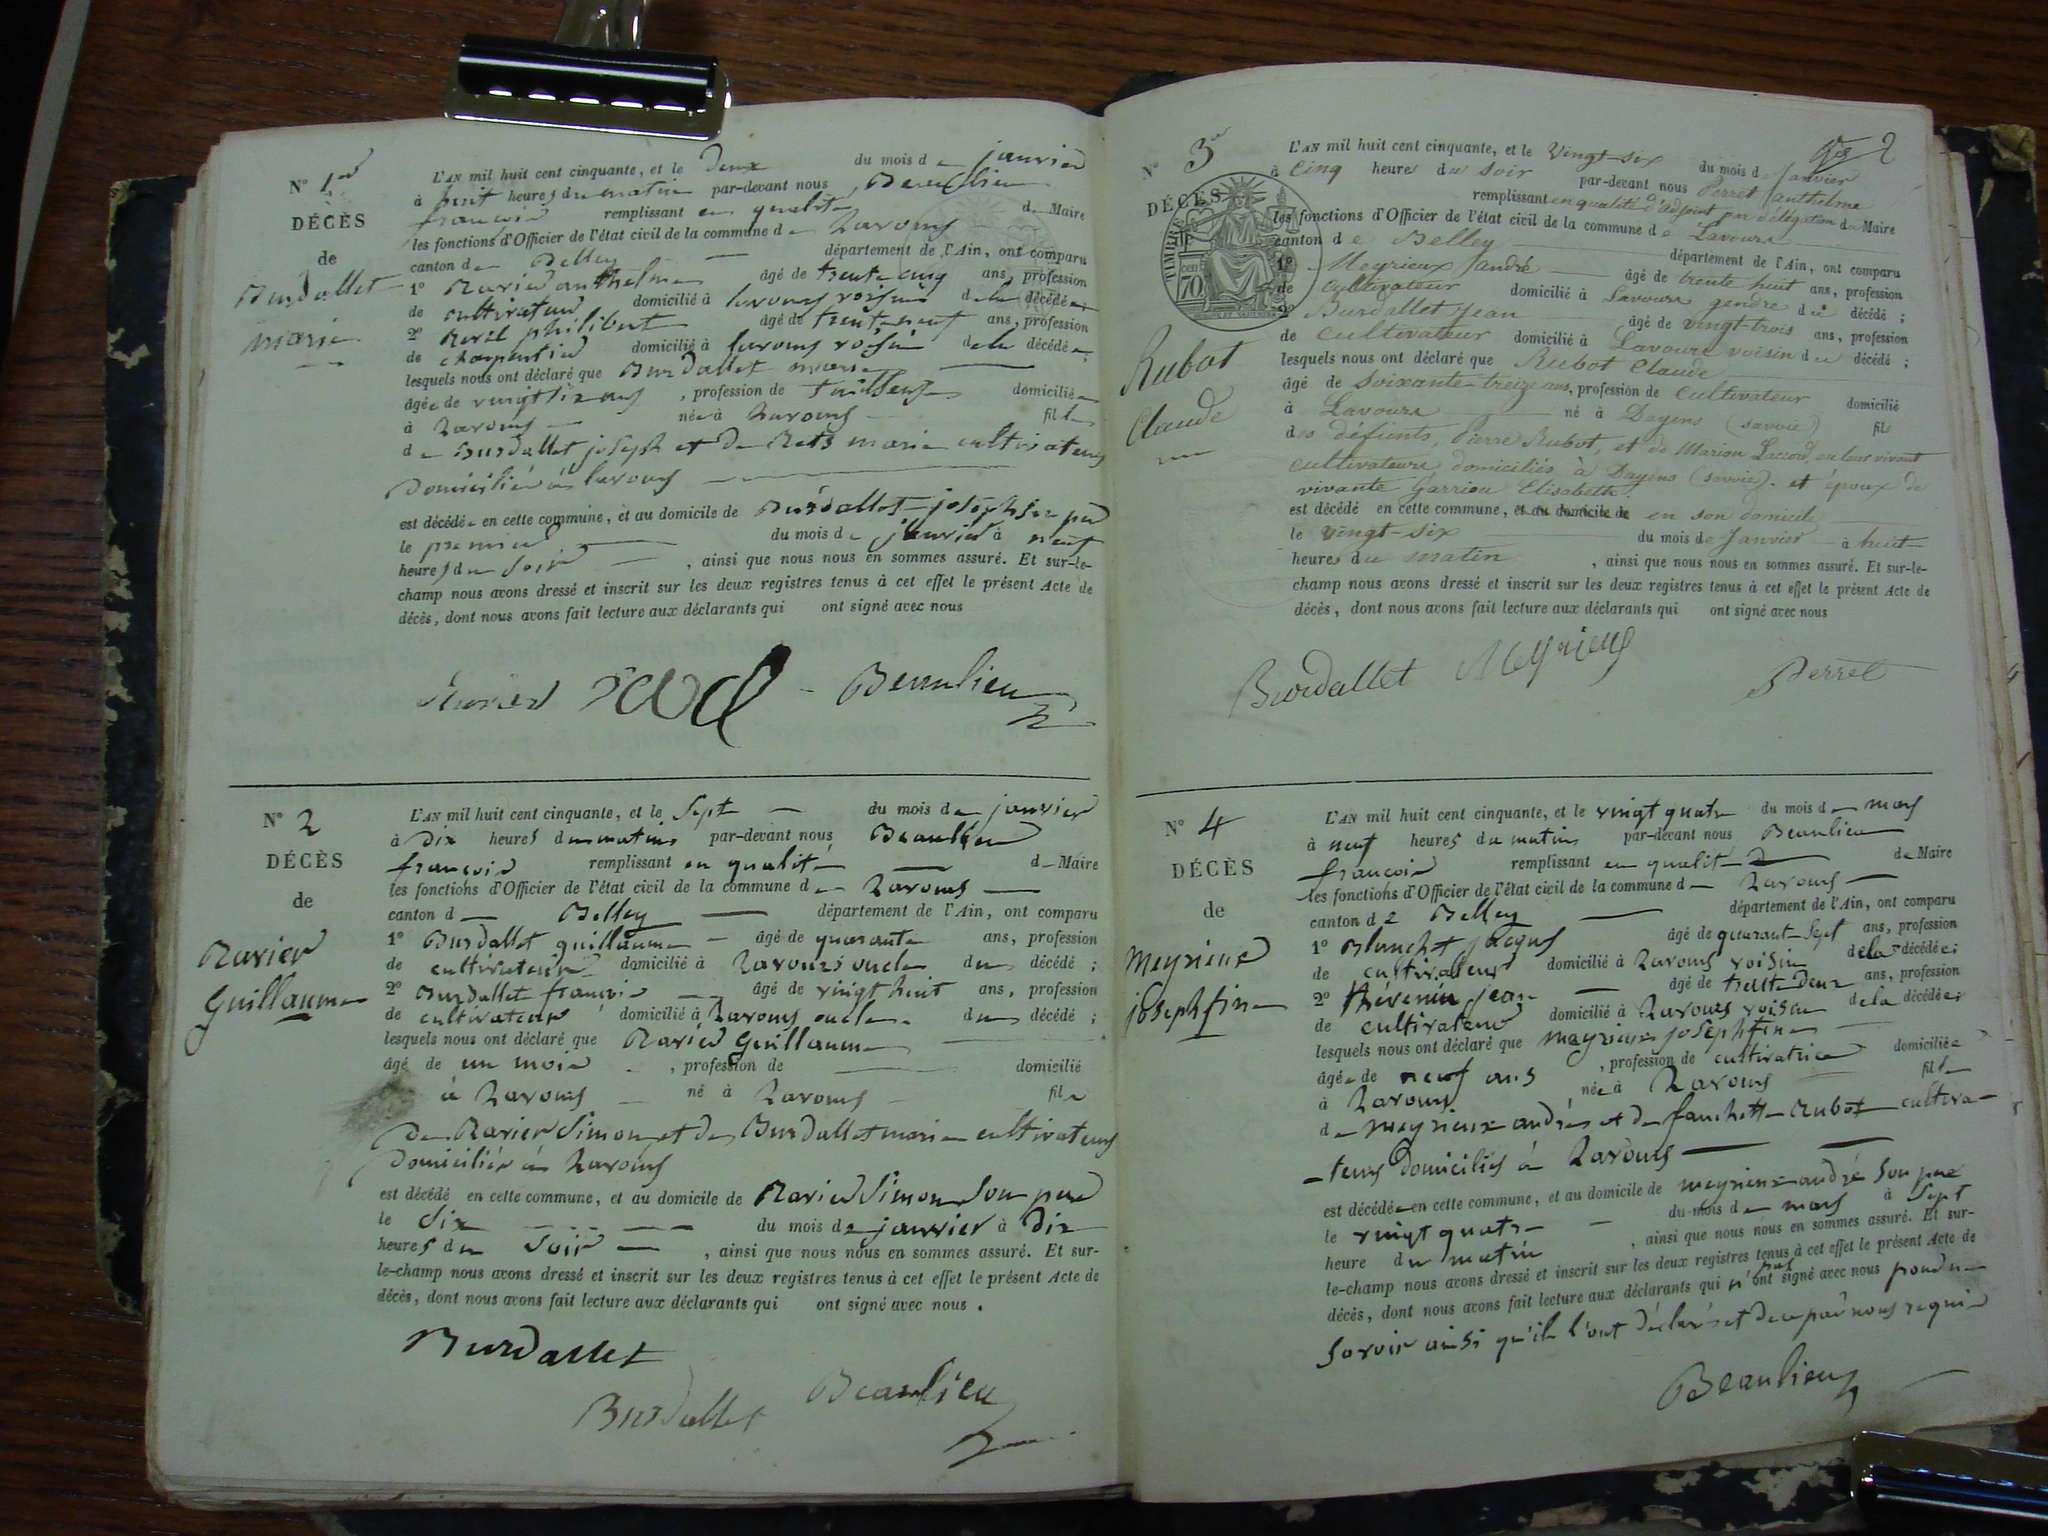 N° 1er
DÉCÈS
de
Burdallet
marie
L'AN mil huit cent cinquante, et le Deux du mois de janvier
à huit heures du matin par-devant nous Beaulieu
françois remplissant en qualité de Maire
les fonctions d'Officier de l'état civil de la commune de Lavours
canton de Belley département de l'Ain, ont comparu
1° Ravier anthelme âgé de trente cinq ans, profession
de cultivateur domicilié à lavours voisin de la décédée;
2° Revel philibert âgé de trente neuf ans, profession
de charpentier domicilié à lavours voisin de la décédée;
lesquels nous ont déclaré que Burdallet marie
âgée de vingt six ans, profession de tailleuse domiciliée
à Lavours née à Lavours fille
de Burdallet joseph et de marie cultivateurs
Domiciliés à lavours
est décédée en cette commune, et au domicile de Burdallet joseph son père
le premier du mois de janvier à neuf
heures du soir, ainsi que nous nous en sommes assuré. Et sur-le-
champ nous avons dressé et inscrit sur les deux registres tenus à cet effet le présent Acte de
décès, dont nous avons fait lecture aux déclarants qui ont signé avec nous
Beaulieu
N° 2
DÉCÈS
de
Ravier
Guillaume
L'AN mil huit cent cinquante, et le Sept du mois de janvier
à Dix heures du matin par-devant nous Beaulieu
françois remplissant en qualité de Maire
les fonctions d'Officier de l'état civil de la commune de Lavours
canton de Belley département de l'Ain, ont comparu
1° Burdallet guillaume âgé de quarante ans, profession
de cultivateur domicilié à Lavours oncle du décédé;
2° Burdallet françois âgé de vingt huit ans, profession
de cultivateur domicilié à Lavours oncle du décédé;
lesquels nous ont déclaré que Ravier Guillaume
âgé de un mois, profession de domicilié
à Lavours né à Lavours fils
De Ravier Simon et de Burdallet marie cultivateurs
domiciliés à Lavours
est décédé en cette commune, et au domicile de Ravier Simon Son père
le Six du mois de janvier à Dix
heures du Soir, ainsi que nous nous en sommes assuré. Et sur-
le-champ nous avons dressé et inscrit sur les deux registres tenus à cet effet le présent Acte de
décès, dont nous avons fait lecture aux déclarants qui ont signé avec nous.
Burdallet
Burdallet Beaulieu
2
N° 3
DÉCÈS
TIMBRE
70
Rubot
Claude
L'AN mil huit cent cinquante, et le Vingt-six du mois de Janvier
à Cinq heure du soir par-devant nous Perret anthelme
remplissant en qualité d'adjoint par délégation du Maire
les fonctions d'Officier de l'état civil de la commune de Lavours
canton de Belley département de l'Ain, ont comparu
1° Meyrieux andré âgé de trente huit ans, profession
de cultivateur domicilié à Lavours gendre du décédé;
2° Burdallet Jean âgé de vingt-trois ans, profession
de cultivateur domicilié à Lavours voisin du décédé;
lesquels nous ont déclaré que Rubot Claude
âgé de soixante-treize ans, profession de Cultivateur domicilié
à Lavours né à Dayens (savoie) fils
des défunts, Pierre Rubot, et de Marion en leur vivant
cultivateurs, domiciliés à Dayens (savoie). et époux de
vivante Garriou Elisabeth.
est décédé en cette commune, et au domicile de en son domicile
le vingt-six du mois de Janvier à huit
heures du matin, ainsi que nous nous en sommes assuré. Et sur-le-
champ nous avons dressé et inscrit sur les deux registres tenus à cet effet le présent Acte de
décès, dont nous avons fait lecture aux déclarants qui ont signé avec nous
Burdallet Meyrieux Perret
N° 4
DÉCÈS
de
Meyrieux
josephfine
L'AN mil huit cent cinquante, et le vingt quatre du mois de mars
à neuf heures du matin par-devant nous Beaulieu
françois remplissant en qualité de Maire
les fonctions d'Officier de l'état civil de la commune de Lavours
canton de Belley département de l'Ain, ont comparu
1° Blanchet jacques âgé de quarante Sept ans, profession
de cultivateur domicilié à Lavours voisin de la décédée;
2° thévenin jean âgé de trente Deux ans, profession
de cultivateur domicilié à Lavours voisin de la décédée;
lesquels nous ont déclaré que meyrieux josephfine
âgée de neuf ans, profession de cultivatrice domiciliée
à Lavours née à Lavours fille
de meyrieux andré et de fanchette Rubot cultiva-
-teurs domiciliés à Lavours
est décédée en cette commune, et au domicile de meyrieux andré Son père
le vingt quatre du mois de mars à Sept
heure du matin, ainsi que nous nous en sommes assuré. Et sur-
le-champ nous avons dressé et inscrit sur les deux registres tenus à cet effet le présent Acte de
décès, dont nous avons fait lecture aux déclarants qui n'ont pas signé avec nous pour ne
Savoir ainsi qu'ils l'ont déclaré et de ce par nous requis
Beaulieu